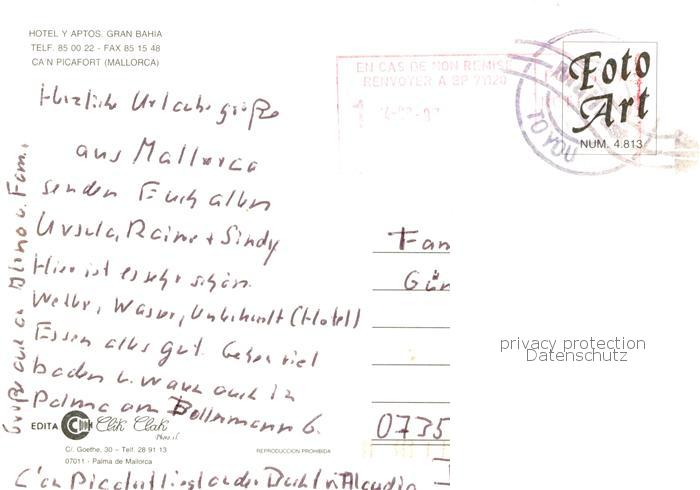 HOTEL Y APTOS. GRAN BAHIA
TELF. 85 00 22 - FAX 85 15 48
CA'N PICAFORT (MALLORCA)
EN CAS DE NON REMISE
RENVOYER A BP 71020
Foto
Art
NUM. 4.813
TO YOU
Herzliche Urlaubsgrüße
aus Mallorca
senden Euch allen
Ursula, Rainer + Sindy
Hier ist es sehr schön.
Wetter, Wasser, Unterkunft (Hotel)
Essen alles gut. Gehen viel
baden u. waren auch in
Palma am Ballermann 6.
C'an Picafort liegt an der Bucht v. Alcudia
Grüße auch an u. Fam.
Fam
Gün
0735
privacy protection
Datenschutz
EDITA Clik Clak
C/. Goethe, 30 - Telf. 28 91 13
07011 - Palma de Mallorca
REPRODUCCION PROHIBIDA